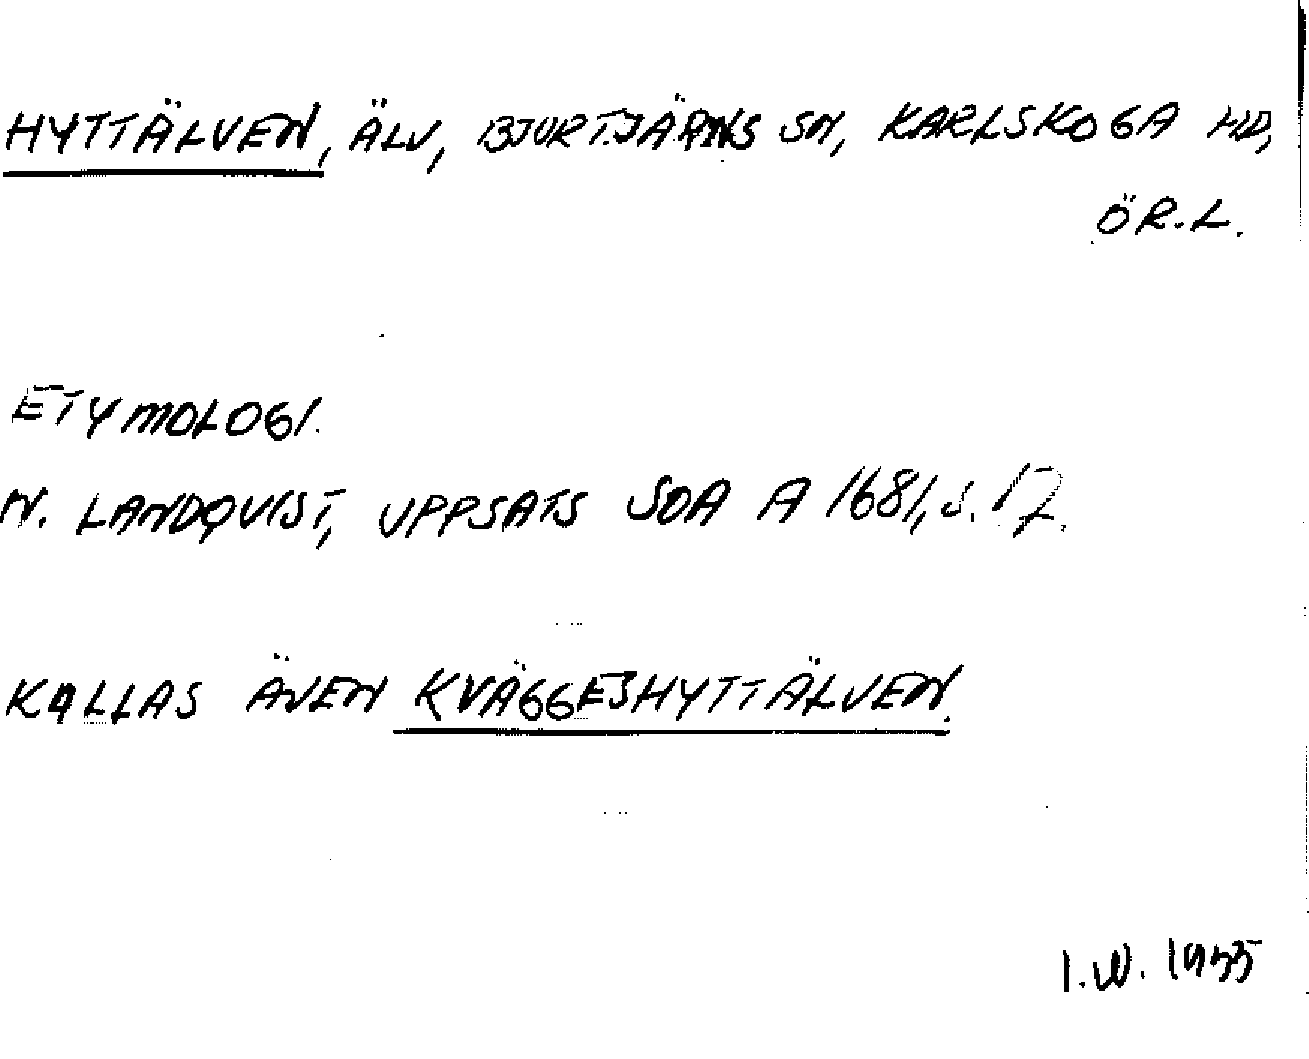 HYTTÄLVEN, ÄLV, BJURTJÄRNS SN, KARLSKOGA HD,
ÖR.L.
ETYMOLOGI.
N. LANDQVIST, UPPSATS SOA A 1681, S. 17.
KALLAS ÄVEN KVÄGGESHYTTÄLVEN.
I.W. 1955